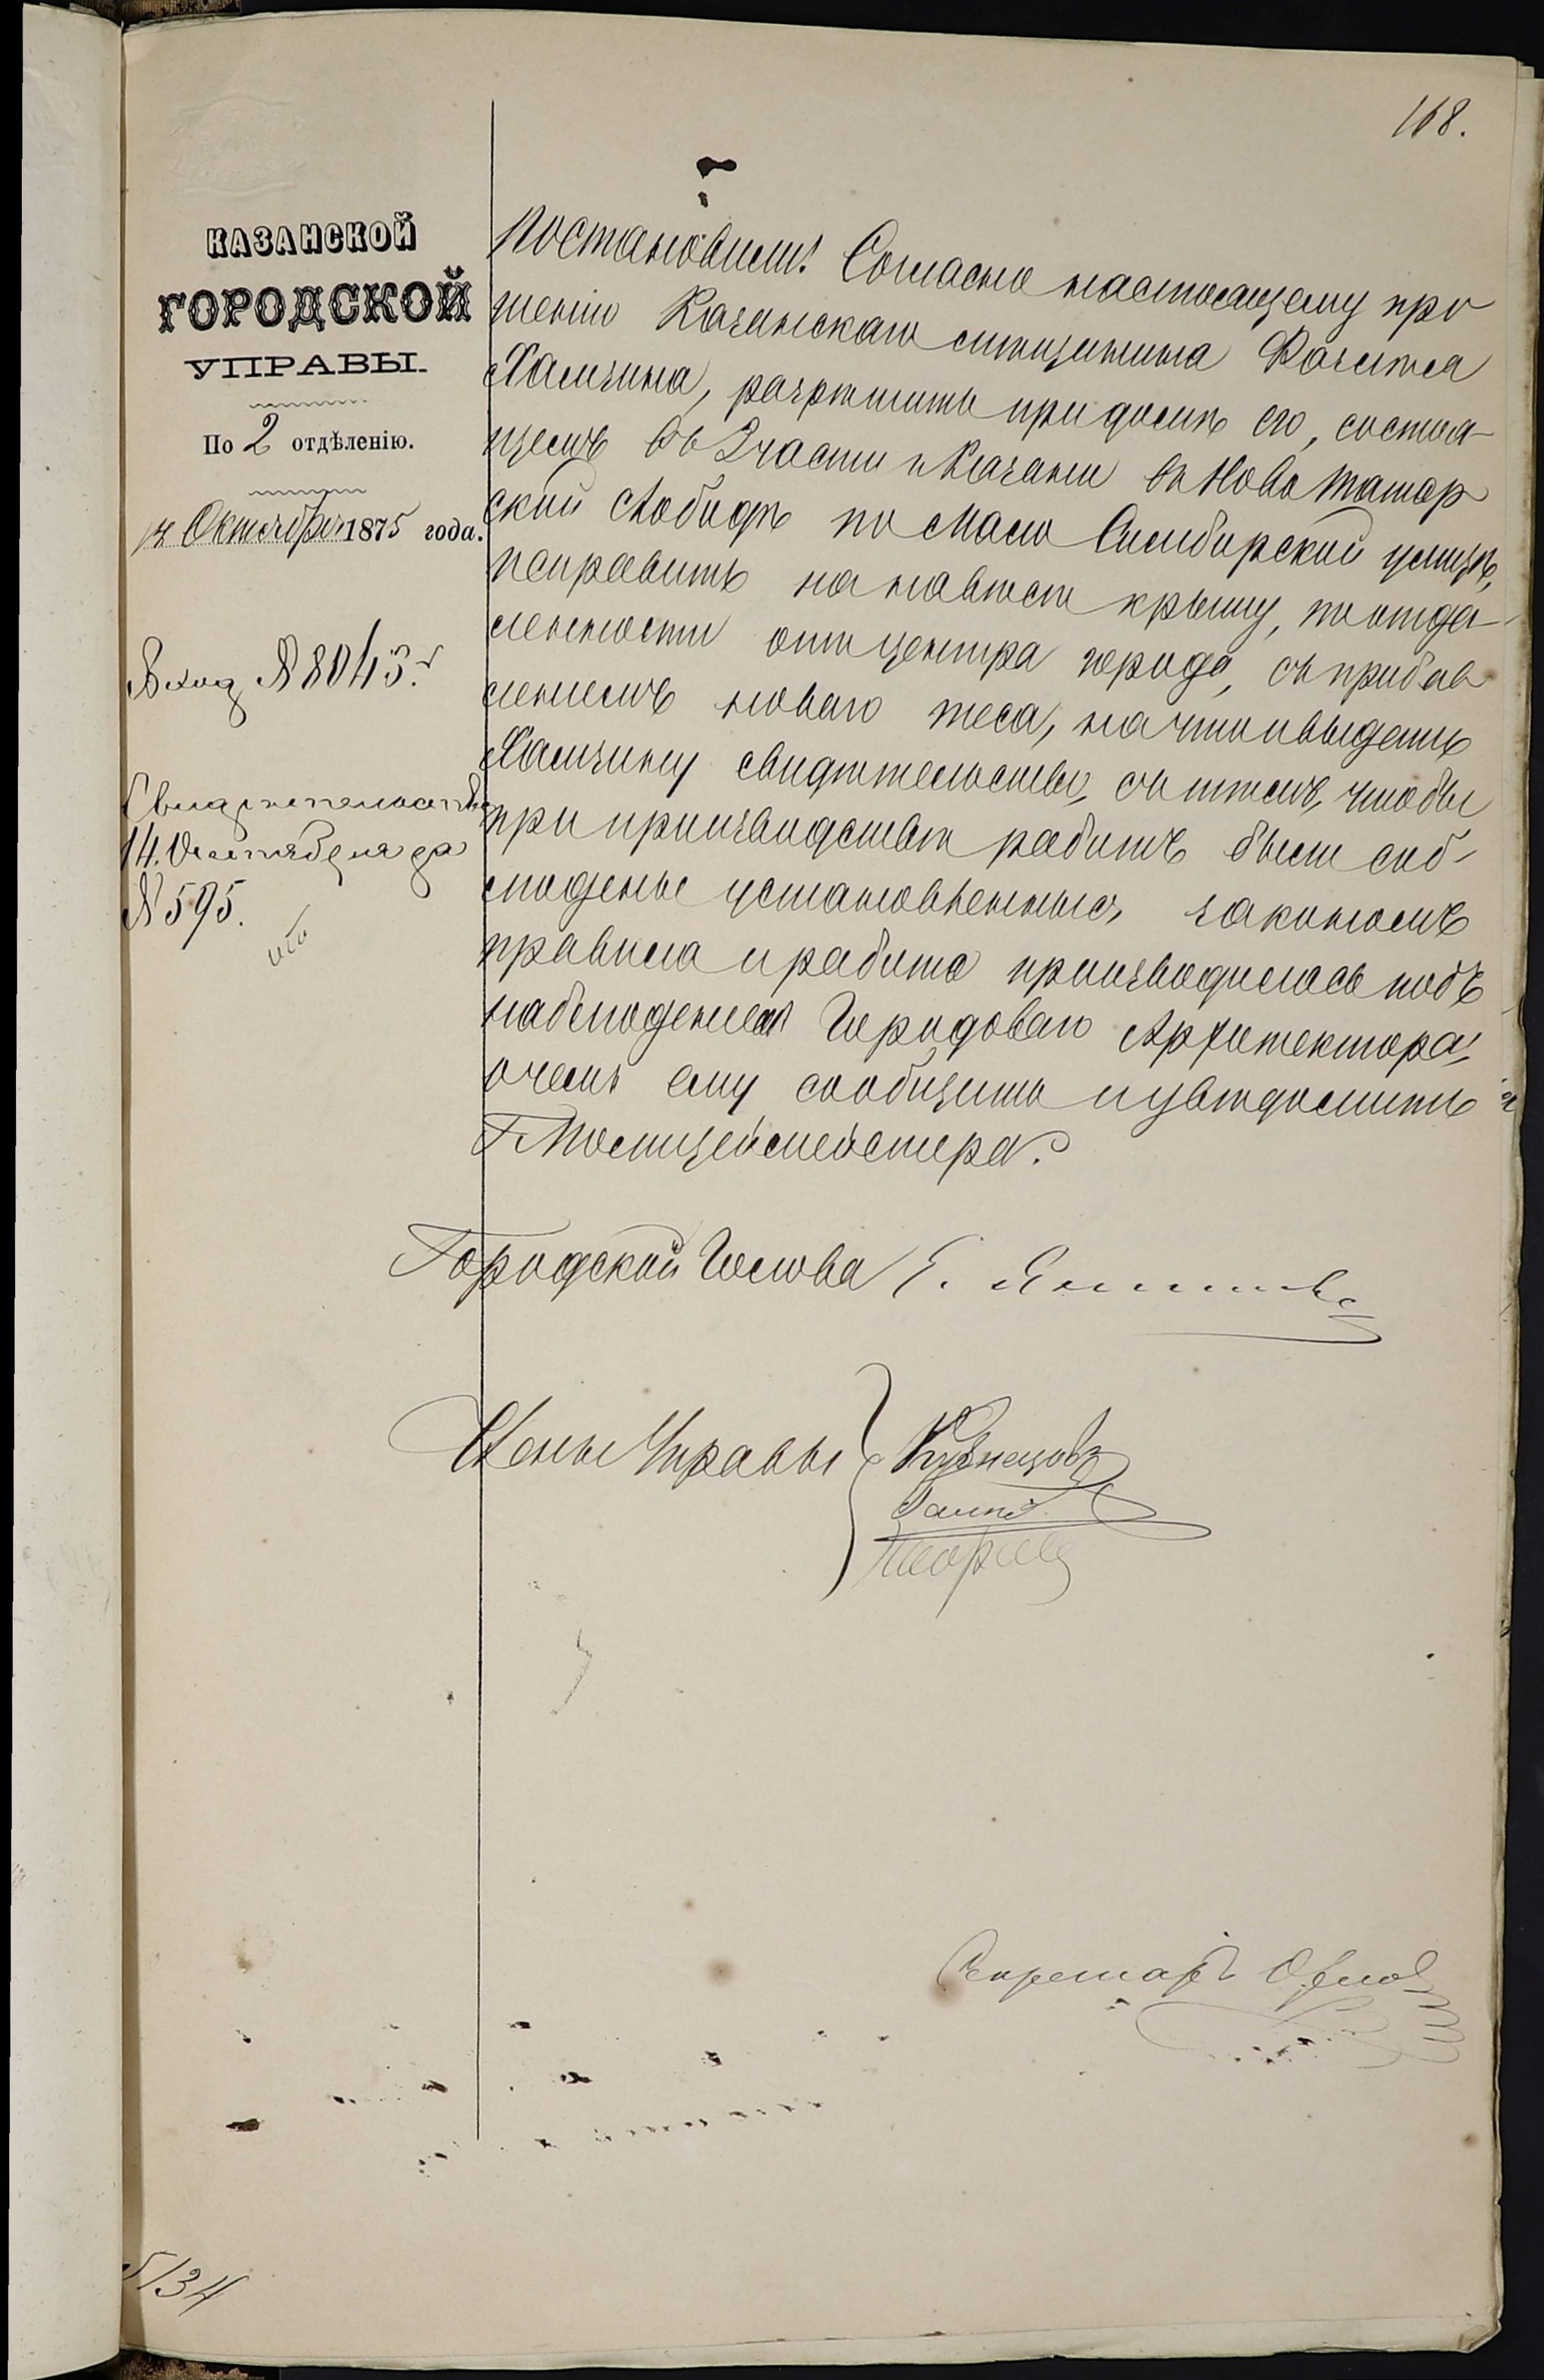 168.
КАЗАНСКОЙ
ГОРОДСКОЙ
УПРАВЫ.
По 2 отдѣленію.
14 Октября 1875 года.
Вход № 8043.
Свидѣтельство
14 Октября за
№ 595.
Постановили: Согласно настоящему про
шенію Казанскаго мѣщанина
Хамзина, разрѣшить при домѣ его, состоя-
щемъ во 2 части г. Казани въ Ново Татар
ской слободѣ по Мало Симбирской улицѣ,
исправить на навѣсѣ крышу, по отда-
ленности отъ центра города, съ прибав
леніемъ новаго теса, на что и выдать
Хамзину свидѣтельство, съ тѣмъ, чтобы
при производствѣ работъ были соб-
людены установленныя закономъ
правила и работа производилась подъ
наблюденіемъ Городоваго Архитектора,
о чемъ ему сообщить и увѣдомить
Г. Полицеймейстера.
Городской Голова Е.
Члены Управы Кузнецовъ
Секретарь Орлов
5134